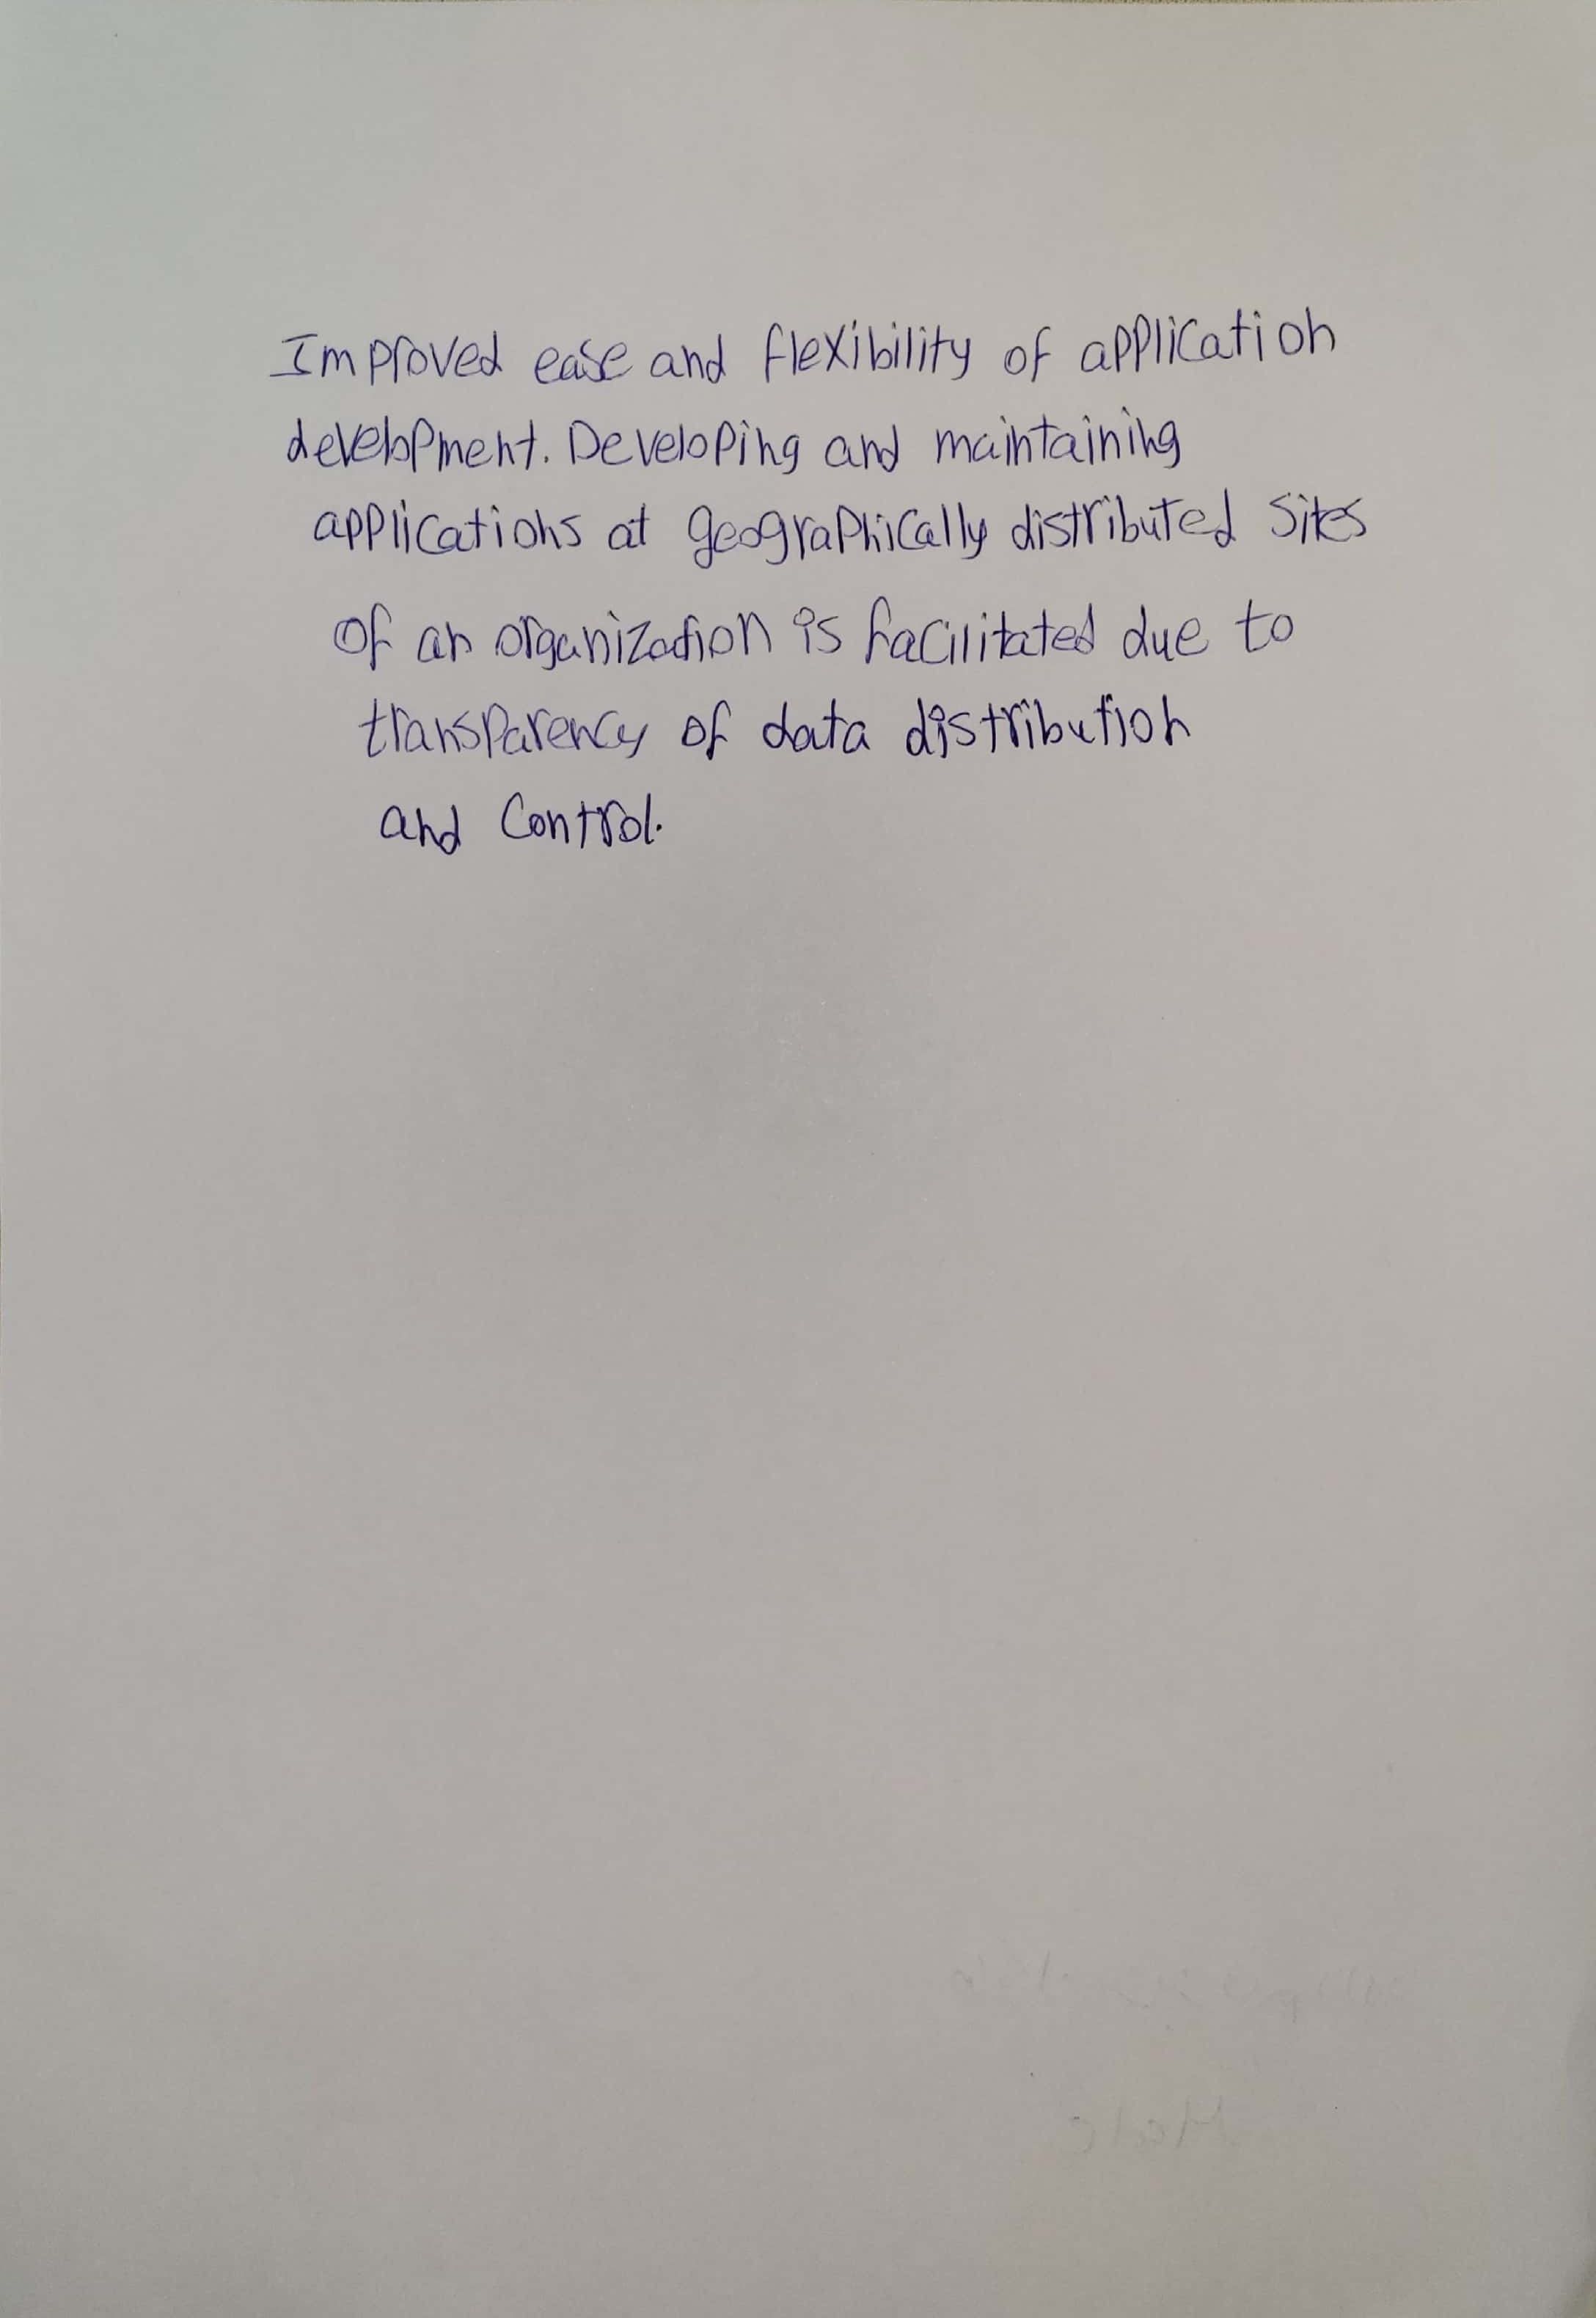 Improved ease and flexibility of application
development. Developing and maintaining
applications at geographically distributed sites
of an organization is facilitated due to
transparency of data distribution
and control.